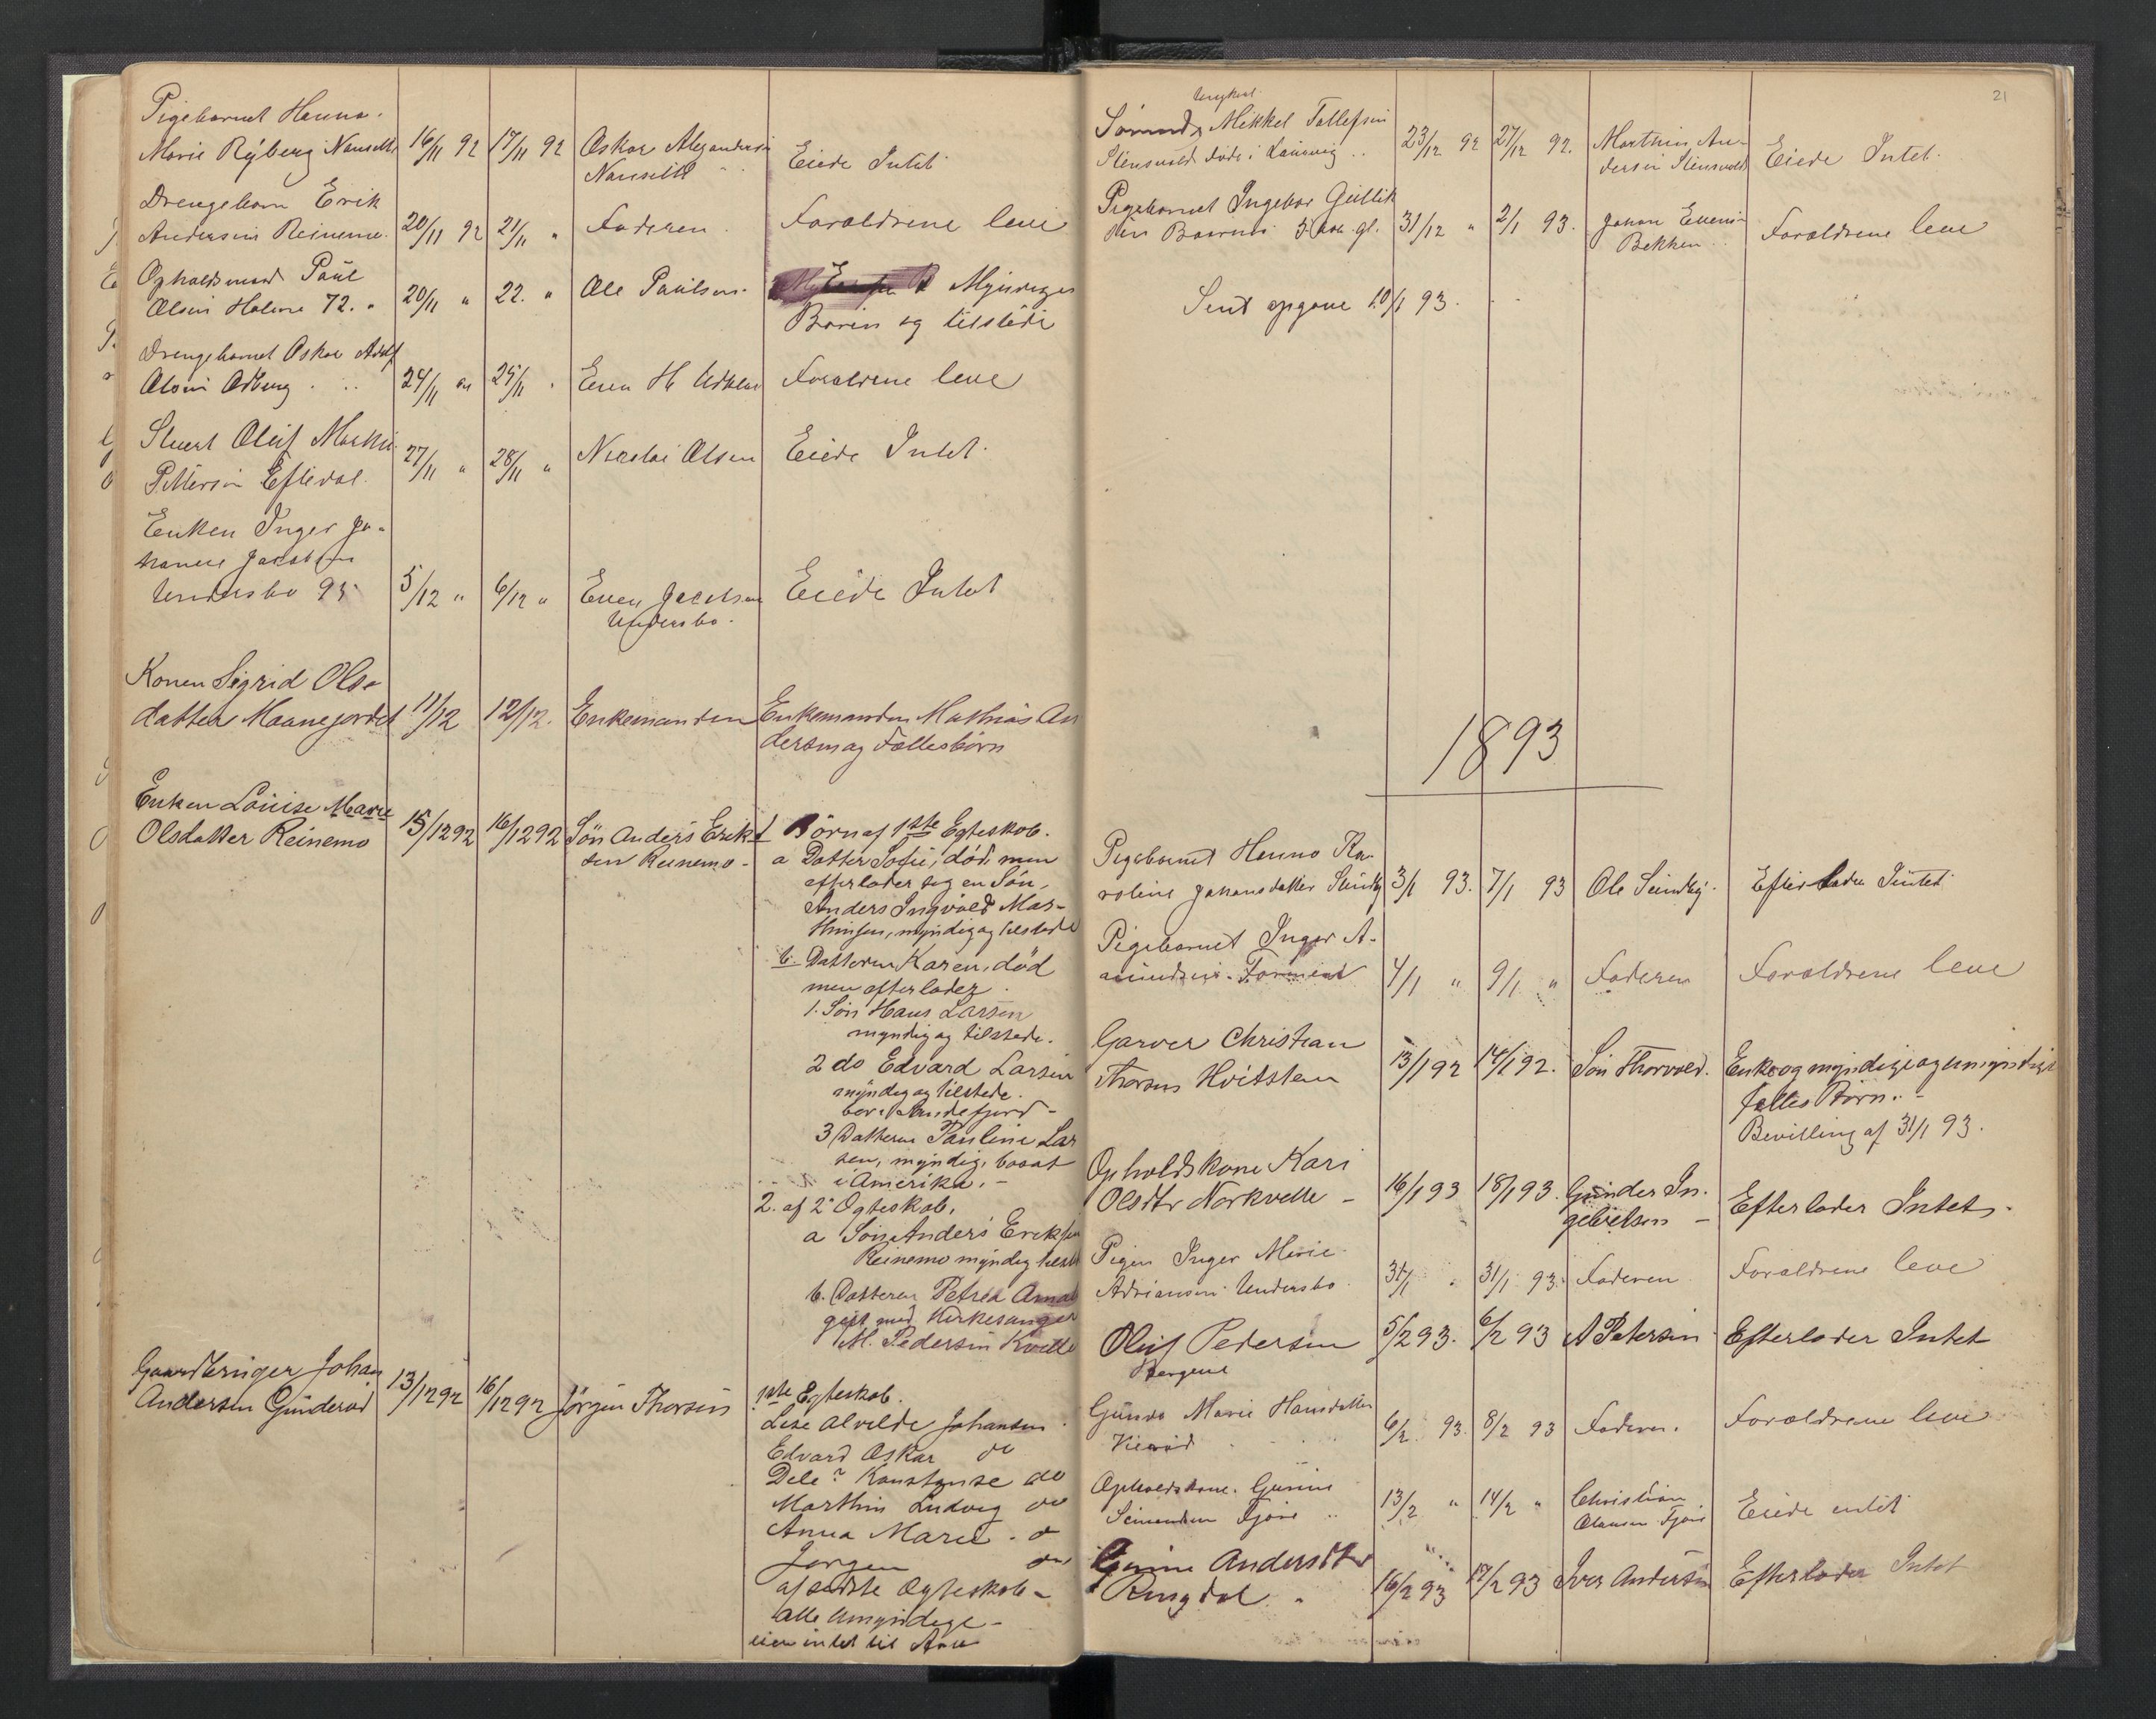 Pigebarnet Hanna
Marie Ryberg Nanset 16/11 92 17/11 92 Oskar Alexandersen Eiede Intet
Nanset
Drengebarn Erik
Andersen Reinemo 20/11 92 21/11 " Faderen Foraldrene leve
Opholdsmand Paul
Olsen Holme 72. 20/11 " 22. " Ole Paulsen Myndige
Børn og tilstede
Drengebarnet Oskar Adolf
Olsen 24/11 25/11 " Even H. Foraldrene leve
Oluf
Pettersen Eftedal 27/11 " 28/11 " Nicolai Olsen Eiede Intet.
Enken Inger Jo-
hanne Jacobsen
Undersbo 95 5/12 " 6/12 " Even Jacobsen Eiede Intet
Undersbo.
Konen Sigrid Ols-
datter Maanejordet 11/12 12/12. Enkemanden Enkemanden Mathias An
dersen og Fællesbörn
Enken Louise Marie
Olsdatter Reinemo 15/12 92 16/12 92 Sön Anders Erik
sen Reinemo -
1 Börn af 1ste Egteskab.
a Datter Sofie, död, men
efterlader sig en Sön,
Anders Ingvald Mar-
thinsen, myndig og tilstede
b. Datteren Karen, död
men efterlader
1. Sön Hans Larsen
myndig og tilstede.
2 do Edvard Larsen
myndig og tilstede.
bor i Sandefjord -
3 Datteren Pauline Lar
sen, myndig, bosat
i Amerika. -
2. af 2° Egteskab,
a Sön Anders Eriksen
Reinemo myndig tilst
b. Datteren Petrea Anna
gift med Kirkesanger
M. Pedersen Kvelle
Gaardbruger Johan
Andersen Gunderød 13/12 92 16/12 92 Jörgen Thorsen
1ste Egteskab.
Lise Alvilde Johansen
Edvard Oskar do
Dele? Konstanse do
Marthin Ludvig do
Anna Marie do
Jørgen do
af sidste Egteskab -
alle umyndige -
eier intet til Arv
21
Mikkel Tollefsen
Stensvold døde i Laurvig 23/12 92 27/12 92. Marthin An-
dersen Stensvold Eiede Intet.
Pigebarnet Ingebor Gullik
sen 31/12 " 2/1 93. Johan Evensen
Bekken Foraldrene leve
Sent opgave 10/1 93.
1893
Pigebarnet Hanna Ka-
roline Johansdatter Sundby 3/1 93. 7/1 93 Ole Sundby. Efterlader Intet
Pigebarnet Inger A-
mundsen 4/1 " 9/1 " Faderen Foraldrene leve
Garver Christian
Thorsen Hvitstein 13/1 92 14/1 92. Sön Thorvald. Enke og myndige og umyndige
felles Börn. -
Bevilling af 31/1 93.
Opholdskone Kari
Olsdtr Norkvelle - 16/1 93 18/1 93. Gunder In-
gebretsen - Efterlader Intet.
Pigen Inger Marie
Adriansen Undersbo 31/1 " 31/1 93. Faderen Foraldrene leve
Oluf Pedersen 5/2 93. 6/2 93 A Petersen Efterlader Intet
Bergene
Gunda Marie Hansdatter
6/2 93. 8/2 93 Faderen. Foraldrene leve
Opholdskone Gunine
Simonsen Fjære 13/2 " 14/2 " Christian
Olausen Fjære Eiede intet
Gurine Andersdtr
Ringdal 16/2 93 17/2 93 Iver Andersen Efterlader Intet